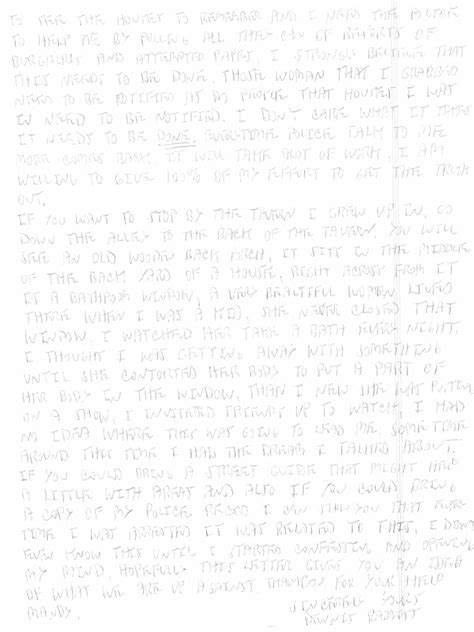 TO SEE THE HOUSES TO REMEMBER AND I NEED THE POLICE
TO HELP ME BY PULLING ALL THEY CAN OF REPORTS OF
BURGLARIES AND ATTEMPTED RAPES, I STRONGLY BELIEVE THAT
THIS NEEDS TO BE DONE. THOSE WOMAN THAT I GRABBED
NEED TO BE NOTIFIED AS DO PEOPLE THAT HOUSES I WAS
IN NEED TO BE NOTIFIED. I DON'T CARE WHAT IT TAKES
IT NEEDS TO BE DONE. EVERYTIME POLICE TALK TO ME
MORE COMES BACK. IT WILL TAKE ALOT OF WORK, I AM
WILLING TO GIVE 100% OF MY EFFORT TO GET THE TRUTH
OUT.
IF YOU WANT TO STOP BY THE TAVERN I GREW UP IN, GO
DOWN THE ALLEY TO THE BACK OF THE TAVERN. YOU WILL
SEE AN OLD WOODEN BACK PORCH, IT SITS IN THE MIDDLE
OF THE BACK YARD OF A HOUSE, RIGHT ACROSS FROM IT
IS A BATHROOM WINDOW, A VERY BEAUTIFUL WOMEN LIVED
THERE WHEN I WAS A KID, SHE NEVER CLOSED THAT
WINDOW. I WATCHED HER TAKE A BATH EVERY NIGHT.
I THOUGHT I WAS GETTING AWAY WITH SOMETHING
UNTIL SHE CONTORTED HER BODY TO PUT A PART OF
HER BODY IN THE WINDOW, THAN I NEW SHE WAS PUTTING
ON A SHOW, I INVITED FRIENDS UP TO WATCH, I HAD
NO IDEA WHERE THIS WAS GOING TO LEAD ME. SOME TIME
AROUND THIS TIME I HAD THE DREAM I TALKED ABOUT.
IF YOU COULD BRING A STREET GUIDE THAT MIGHT HELP
A LITTLE WITH AREAS AND ALSO IF YOU COULD BRING
A COPY OF MY POLICE RECORD I CAN SHOW YOU THAT EVERY
TIME I WAS ARRESTED IT WAS RELATED TO THIS, I DIDN'T
EVEN KNOW THIS UNTIL I STARTED CONFESSING AND OPENING
MY MIND, HOPEFULLY THIS LETTER GIVES YOU AN IDEA
OF WHAT WE ARE UP AGAINST. THANKYOU FOR YOUR HELP
MANDY.
SINCERELY YOURS
DENNIS RABBITT